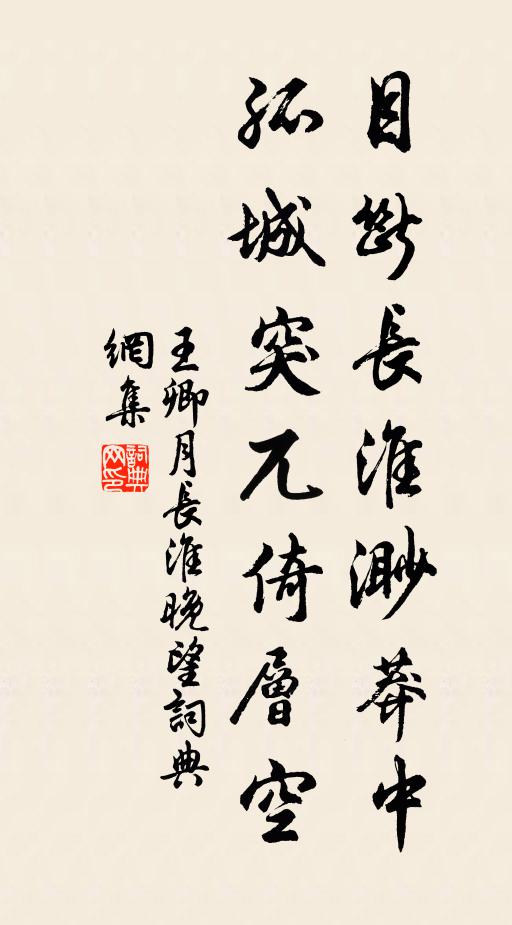 目斷長淮渺莽中
孤城突兀倚層空
王卿月長淮晚望詞典
網集
詞典
网印